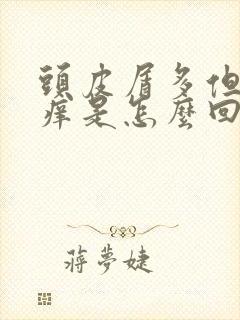 頭皮屑多但
癢是怎麼回
蔣夢婕